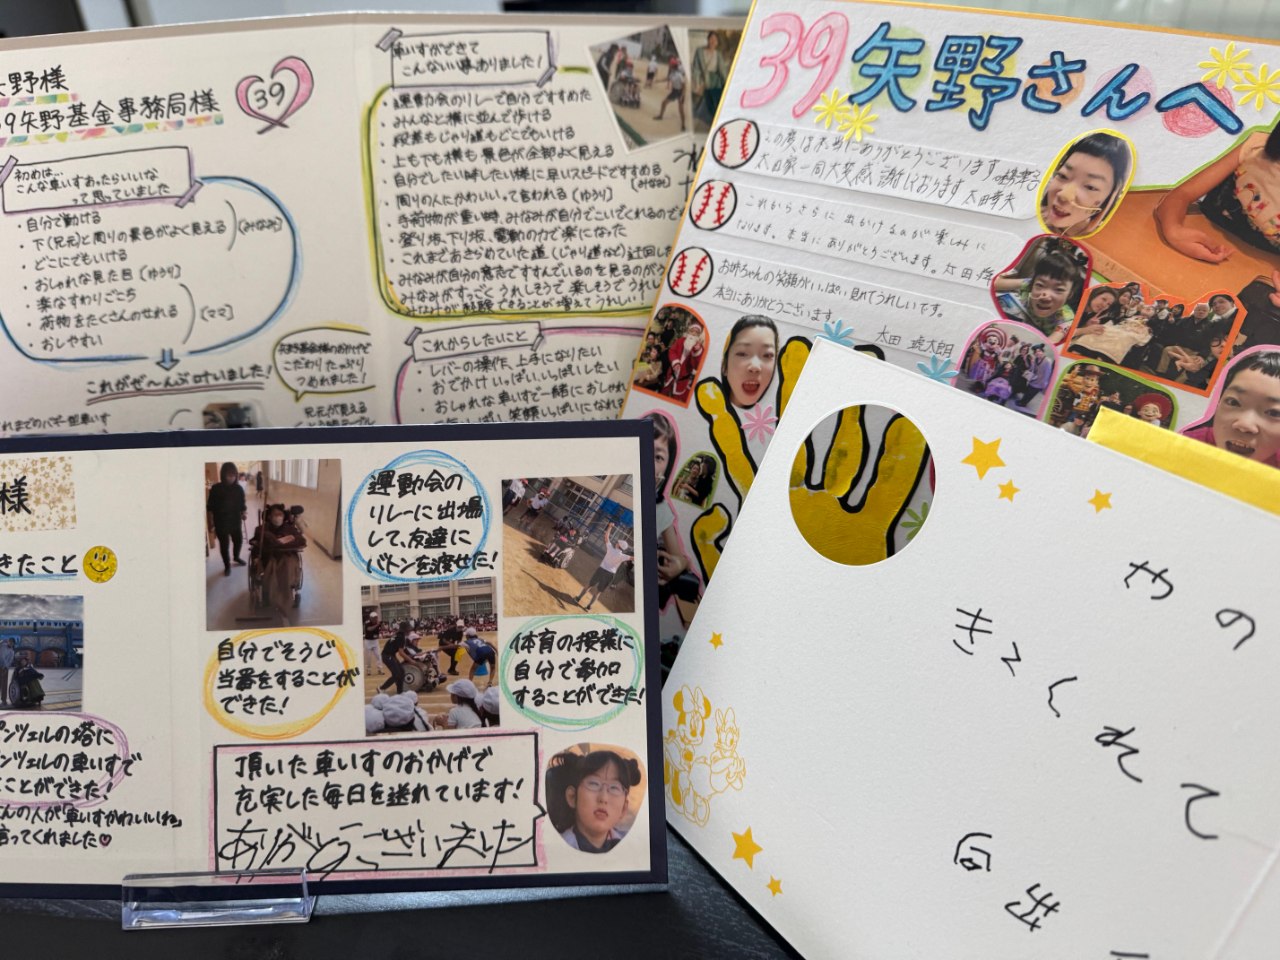 矢野様
39矢野基金事務局様
39
初めは…
こんな車いすあったらいいな
って思っていました
・自分で動ける
・下(足元)と周りの景色がよく見える
(みなみ)
・どこにでもいける
・おしゃれな見た目(ゆうり)
・楽なすわりごこち
・荷物をたくさんのせれる
(ママ)
・おしやすい
これがぜ〜んぶ叶いました!
矢野基金様のおかげで
こだわりたっぷり
つめれました!
足元が見える
車いすができて
こんないい事ありました!
・運動会のリレーで自分ですすめた
・みんなと横に並んで歩ける
・段差もじゃり道もどこでもいける
・上も下も横も景色が全部よく見える
・自分でしたい時したい様に早いスピードですすめる
(みなみ)
・周りの人にかわいいって言われる(ゆうり)
・手荷物が重い時、みなみが自分でこいでくれるので
・登り坂、下り坂、電動の力で楽になった
・これまであきらめていた道(じゃり道など)迂回した
・みなみが自分の意志ですすんでいるのを見るのがう
・みなみがすっごくうれしそうで楽しそうでうれし
・みなみが経験できることが増えてうれしい!
これからしたいこと
・レバーの操作、上手になりたい
・おでかけいっぱいいっぱいしたい
・おしゃれな車いすで一緒におしゃれ
39矢野さんへ
この度は本当にありがとうございます。
太田家一同大変感謝しております 太田幸夫
これからさらに出かけるのが楽しみに
なります。本当にありがとうございます。太田
お姉ちゃんの笑顔がいっぱい見れてうれしいです。
本当にありがとうございます。
太田 琥太朗
様
きたこと
ンツェルの塔に
ンツェルの車いすで
ことができた!
さんの人が「車いすかわいいね」
言ってくれました♡
自分でそうじ
当番をすることが
できた!
運動会の
リレーに出場
して、友達に
バトンを渡せた!
体育の授業に
自分で参加
することができた!
頂いた車いすのおかげで
充実した毎日を送れています!
ありがとうございました
やの
ききくれて